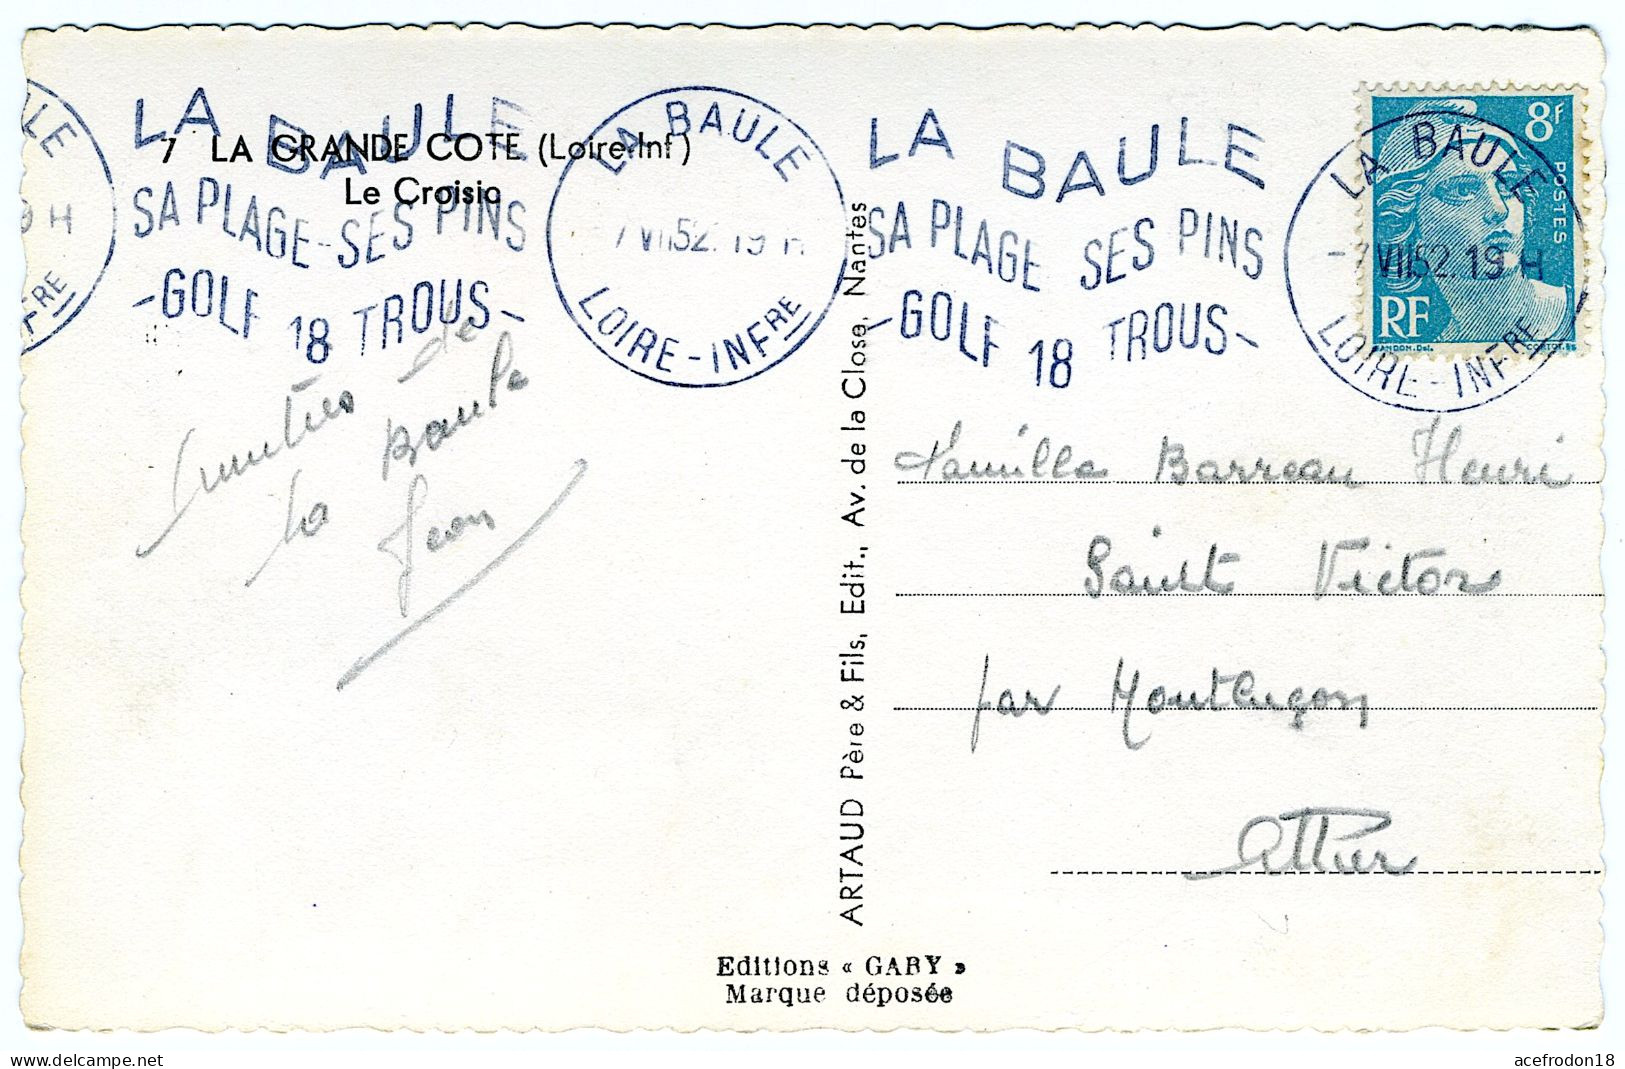 LA BAULE
SA PLAGE - SES PINS
- GOLF 18 TROUS -
7 LA GRANDE COTE (Loire-Inf)
Le Croisic
ULE
9 H
FRE
LA BAULE
7 VII 52. 19 H
LOIRE-INFRE
LA BAULE
SA PLAGE SES PINS
- GOLF 18 TROUS -
8F
POSTES
RF
GANDON.Del.
CORTOT.SC
LA BAULE
-7 VII 52. 19 H
LOIRE-INFRE
Amitiés de
la Baule
Jean
ARTAUD Père & Fils, Edit., Av. de la Close, Nantes
Famille Barreau Henri
Saint Victor
par Montluçon
Allier
Editions « GABY »
Marque déposée
www.delcampe.net
acefrodon18